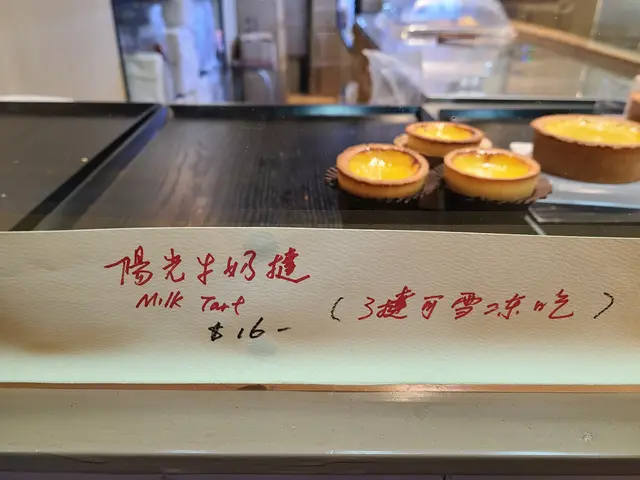 陽光牛奶撻
Milk Tart
$16-
(撻可雪冻吃)